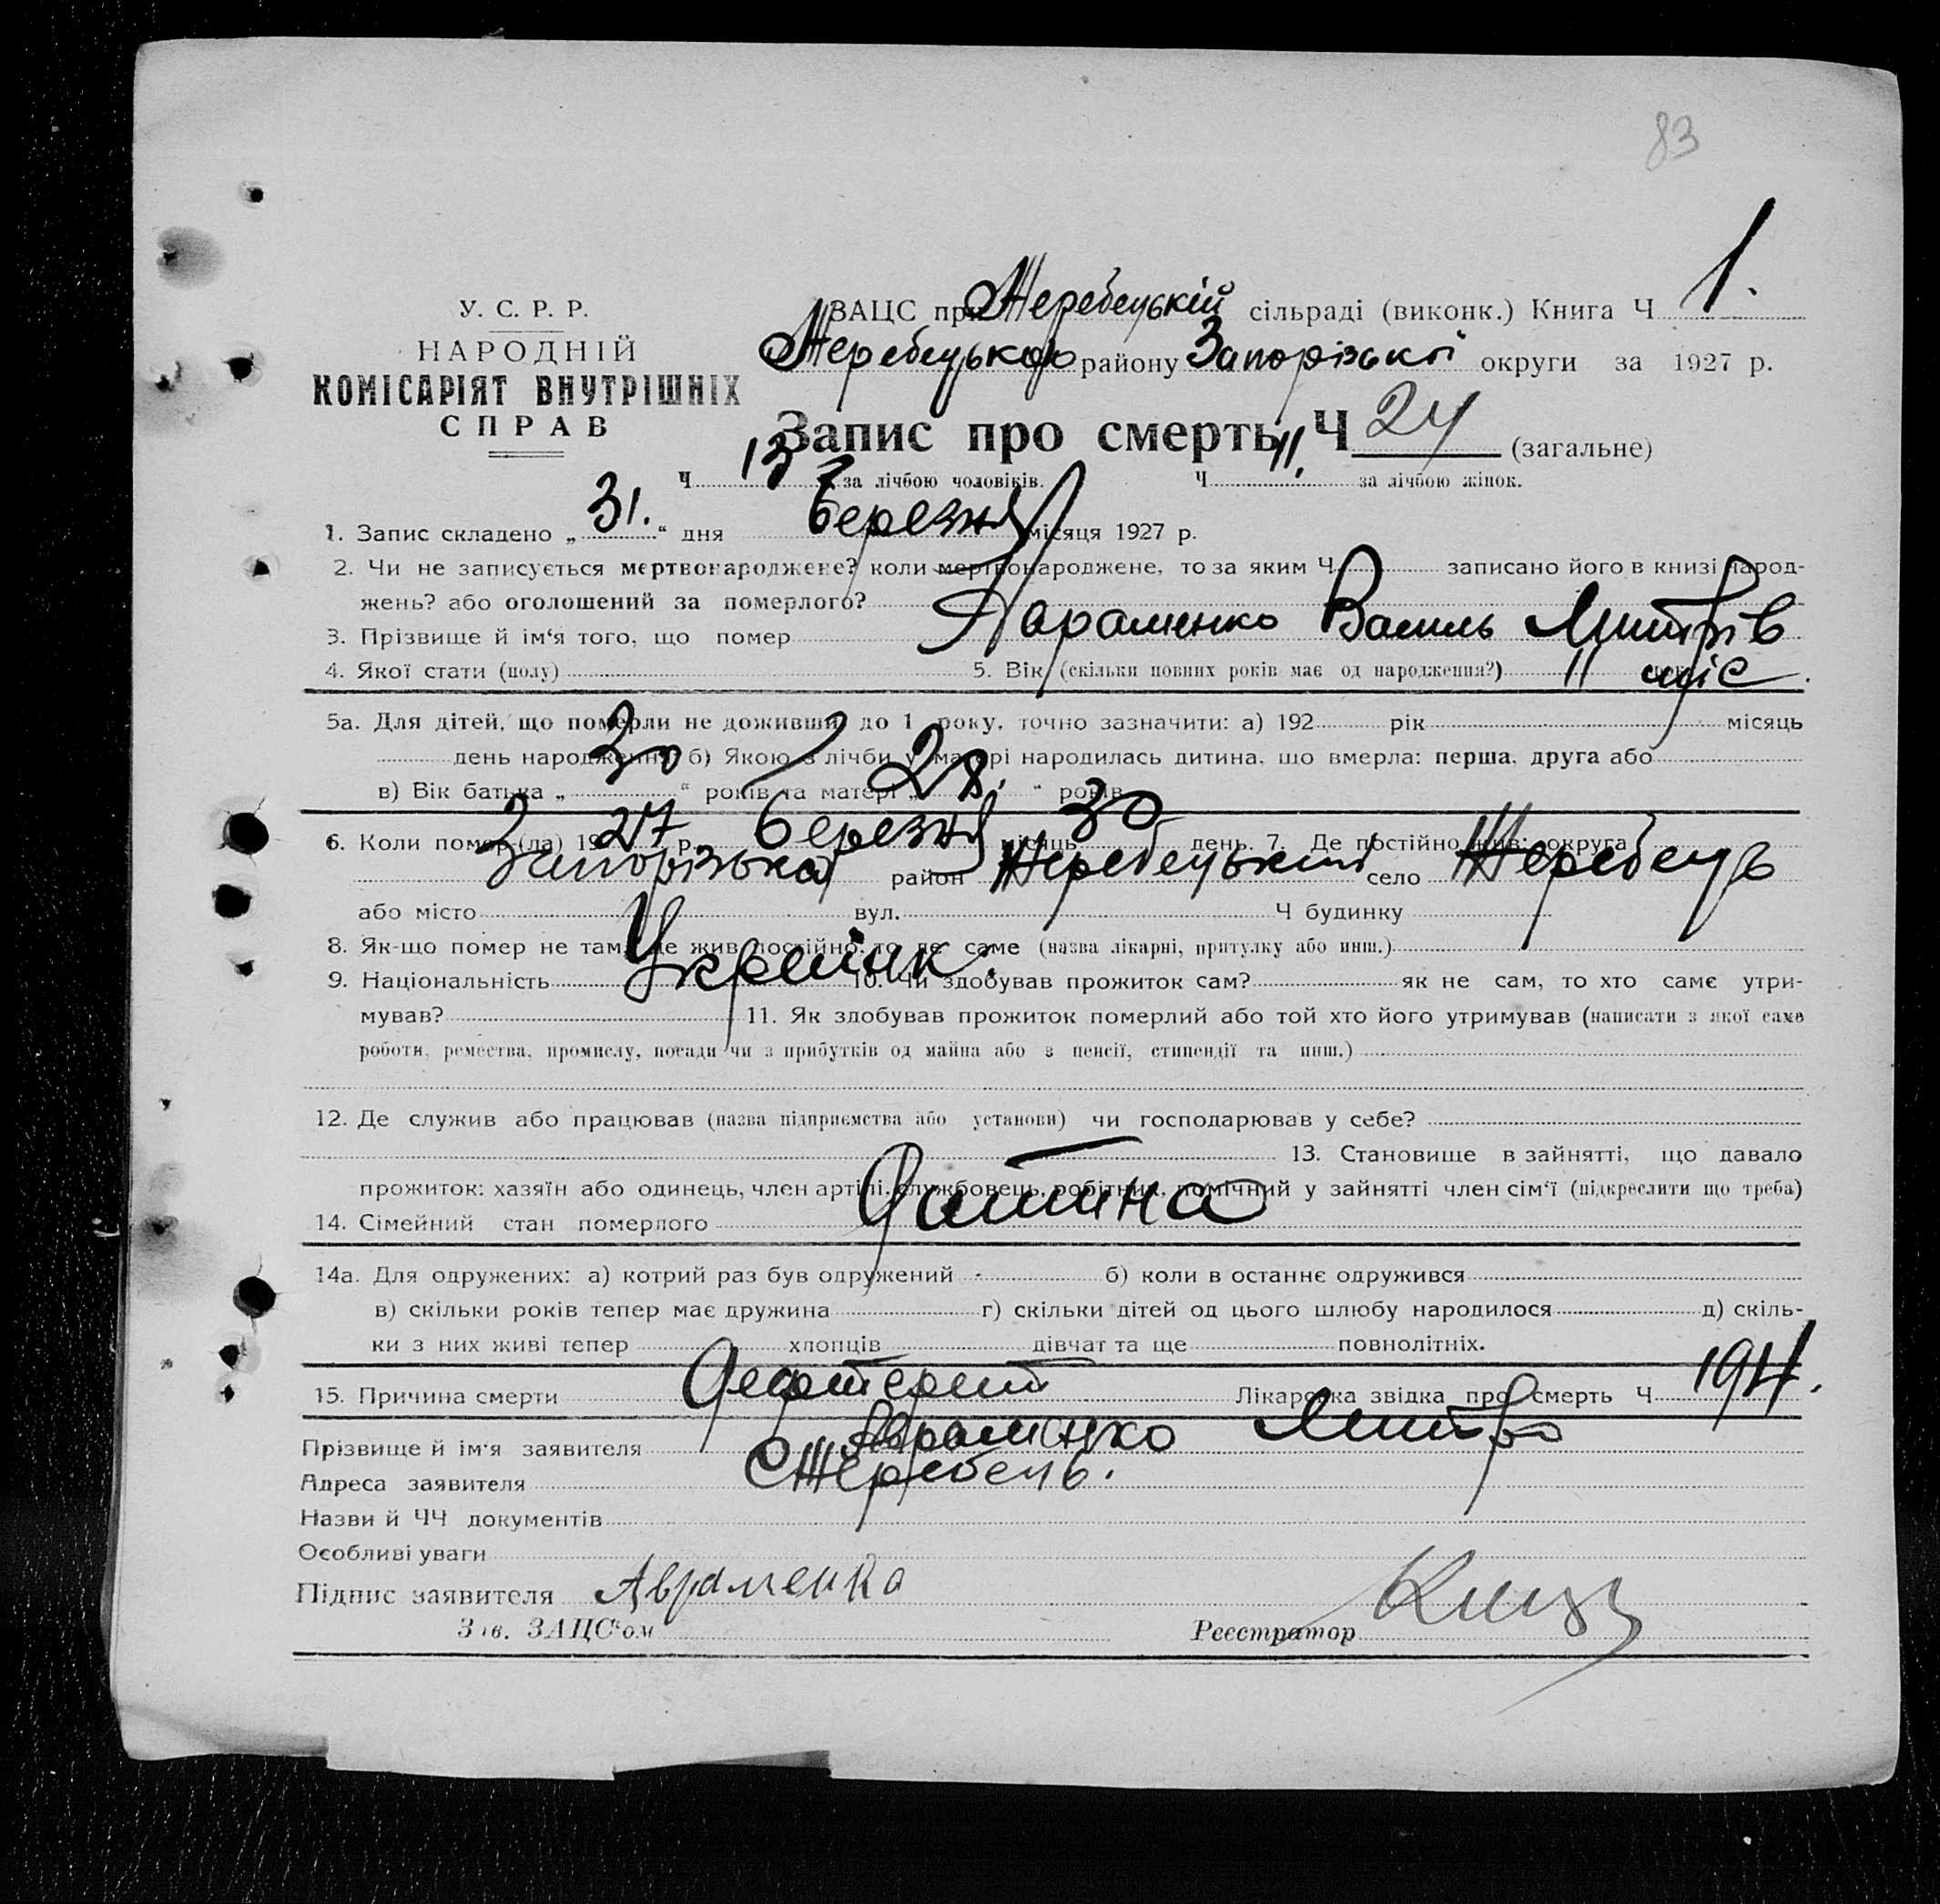 83
У. С. Р. Р.
НАРОДНІЙ
КОМІСАРІЯТ ВНУТРІШНІХ
СПРАВ
ЗАЦС при Жеребецькій сільраді (виконк.) Книга Ч 1.
Жеребецького району Запорізької округи за 1927 р.
Запис про смерть Ч 24 (загальне)
Ч 13 за лічбою чоловіків. Ч 11. за лічбою жінок.
1. Запис складено „ 31. “ дня березня місяця 1927 р.
2. Чи не записується мертвонароджене? коли мертвонароджене, то за яким Ч записано його в книзі народ-
жень? або оголошений за померлого?
3. Прізвище й ім‘я того, що помер Авраменко Василь Митрів
4. Якої стати (полу) 5. Вік (скільки повних років має од народження?) 11 міс.
5а. Для дітей, що померли не доживши до 1 року, точно зазначити: а) 192 рік місяць
день народження б) Якою з лічби у матері народилась дитина, що вмерла: перша, друга або
в) Вік батька „ 30 “ років та матері „ 28. “ років
6. Коли помер (ла) 1927 р. березня місяць 30 день. 7. Де постійно жив: округа
Запорізька район Жеребецький село Жеребець
або місто вул. Ч будинку
8. Як-що помер не там, де жив постійно, то де саме (назва лікарні, притулку або инш.)
9. Національність Українк. 10. Чи здобував прожиток сам? як не сам, то хто саме утри-
мував? 11. Як здобував прожиток померлий або той хто його утримував (написати з якої саме
роботи, ремества, промислу, посади чи з прибутків од майна або з пенсії, стипендії та инш.)
12. Де служив або працював (назва підприємства або установи) чи господарював у себе?
13. Становище в зайнятті, що давало
прожиток: хазяїн або одинець, член артілі, службовець, робітник, помічний у зайнятті член сім‘ї (підкреслити що треба)
14. Сімейний стан померлого Дитина
14а. Для одружених: а) котрий раз був одружений - б) коли в останнє одружився
в) скільки років тепер має дружина г) скільки дітей од цього шлюбу народилося д) скіль-
ки з них живі тепер хлопців дівчат та ще повнолітніх.
15. Причина смерти Дефтерит Лікарська звідка про смерть Ч
Прізвище й ім‘я заявителя Авраменко Митро
Адреса заявителя Жеребець.
Назви й ЧЧ документів
Особливі уваги
Підпис заявителя Авраменко
Зав. ЗАЦС‘ом Реєстратор